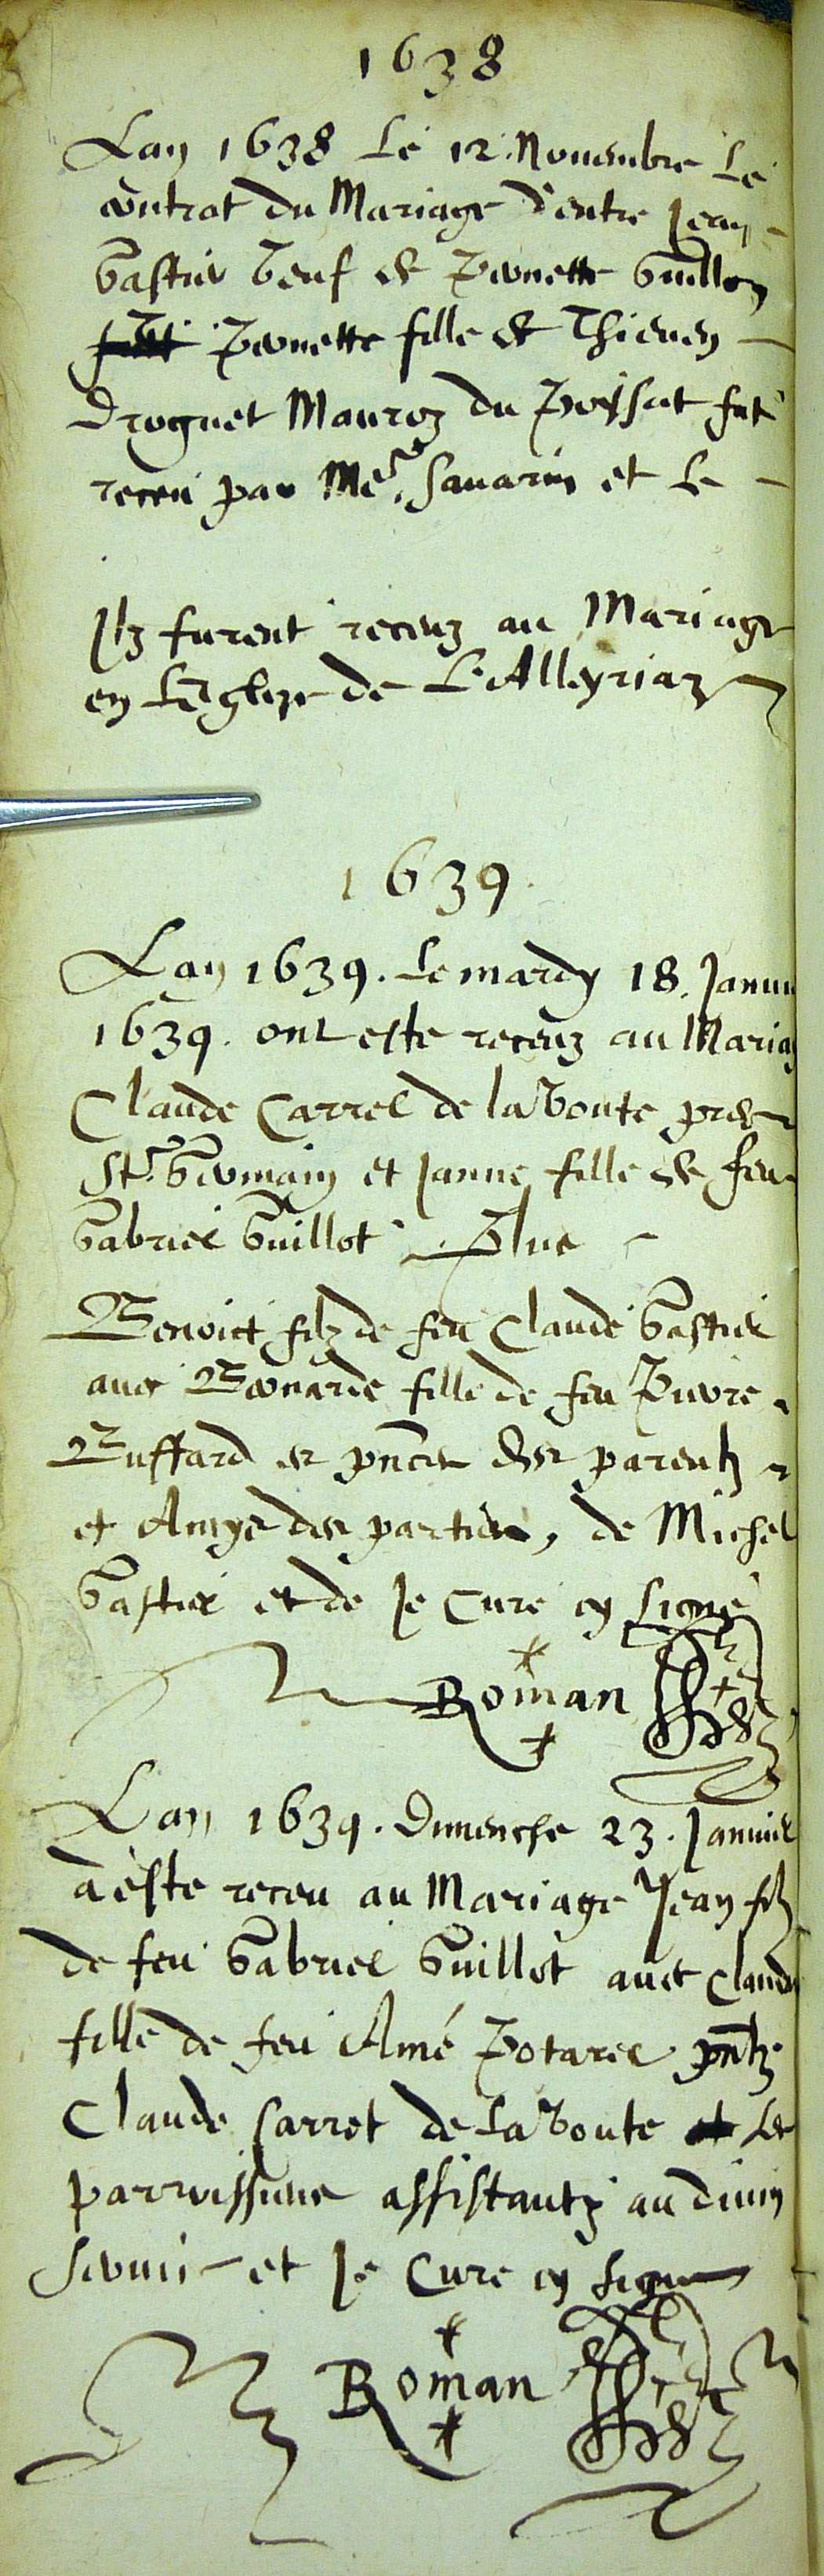 1638
Lan 1638 Le 12. Nouembre Le
contrat du Mariage d'entre Jean
Gastier Veuf de Pernette Guillon
Pernette fille de Thieuen
Droguet Mauroz du Poysat fut
receu par Me. Sauarin et Le
Ilz furent receuz au Mariage
en Leglize de L'Alleyriaz
1639.
Lan 1639. Le mardy 18. Januie
1639. ont este receuz au Mariag
Claude Carrel de la Voute pres
St. Germain et Janne fille de feu
Gabriel Guillot. Plus
Benoict filz de feu Claude Gastier
auec Bernarde fille de feu Pierre
Buffard es pnces des parentz
et Amys des parties, de Michel
Gastier et de Je Cure cy signé
Roman
Lan 1639. Dimenche 23. Januier
a este receu au Mariage Jean filz
de feu Gabriel Guillot auec Claude
fille de feu Amé Potarel pntz
Claude Carret de La Voute Les
parroissiens assistantz au diuin
seruice et Je Cure cy signe
Roman